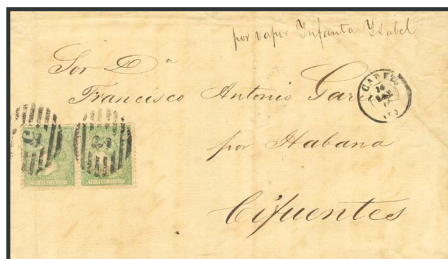 por vapor Infanta Ysabel
Sor Dn
Francisco Antonio Gar
por Habana
Cifuentes